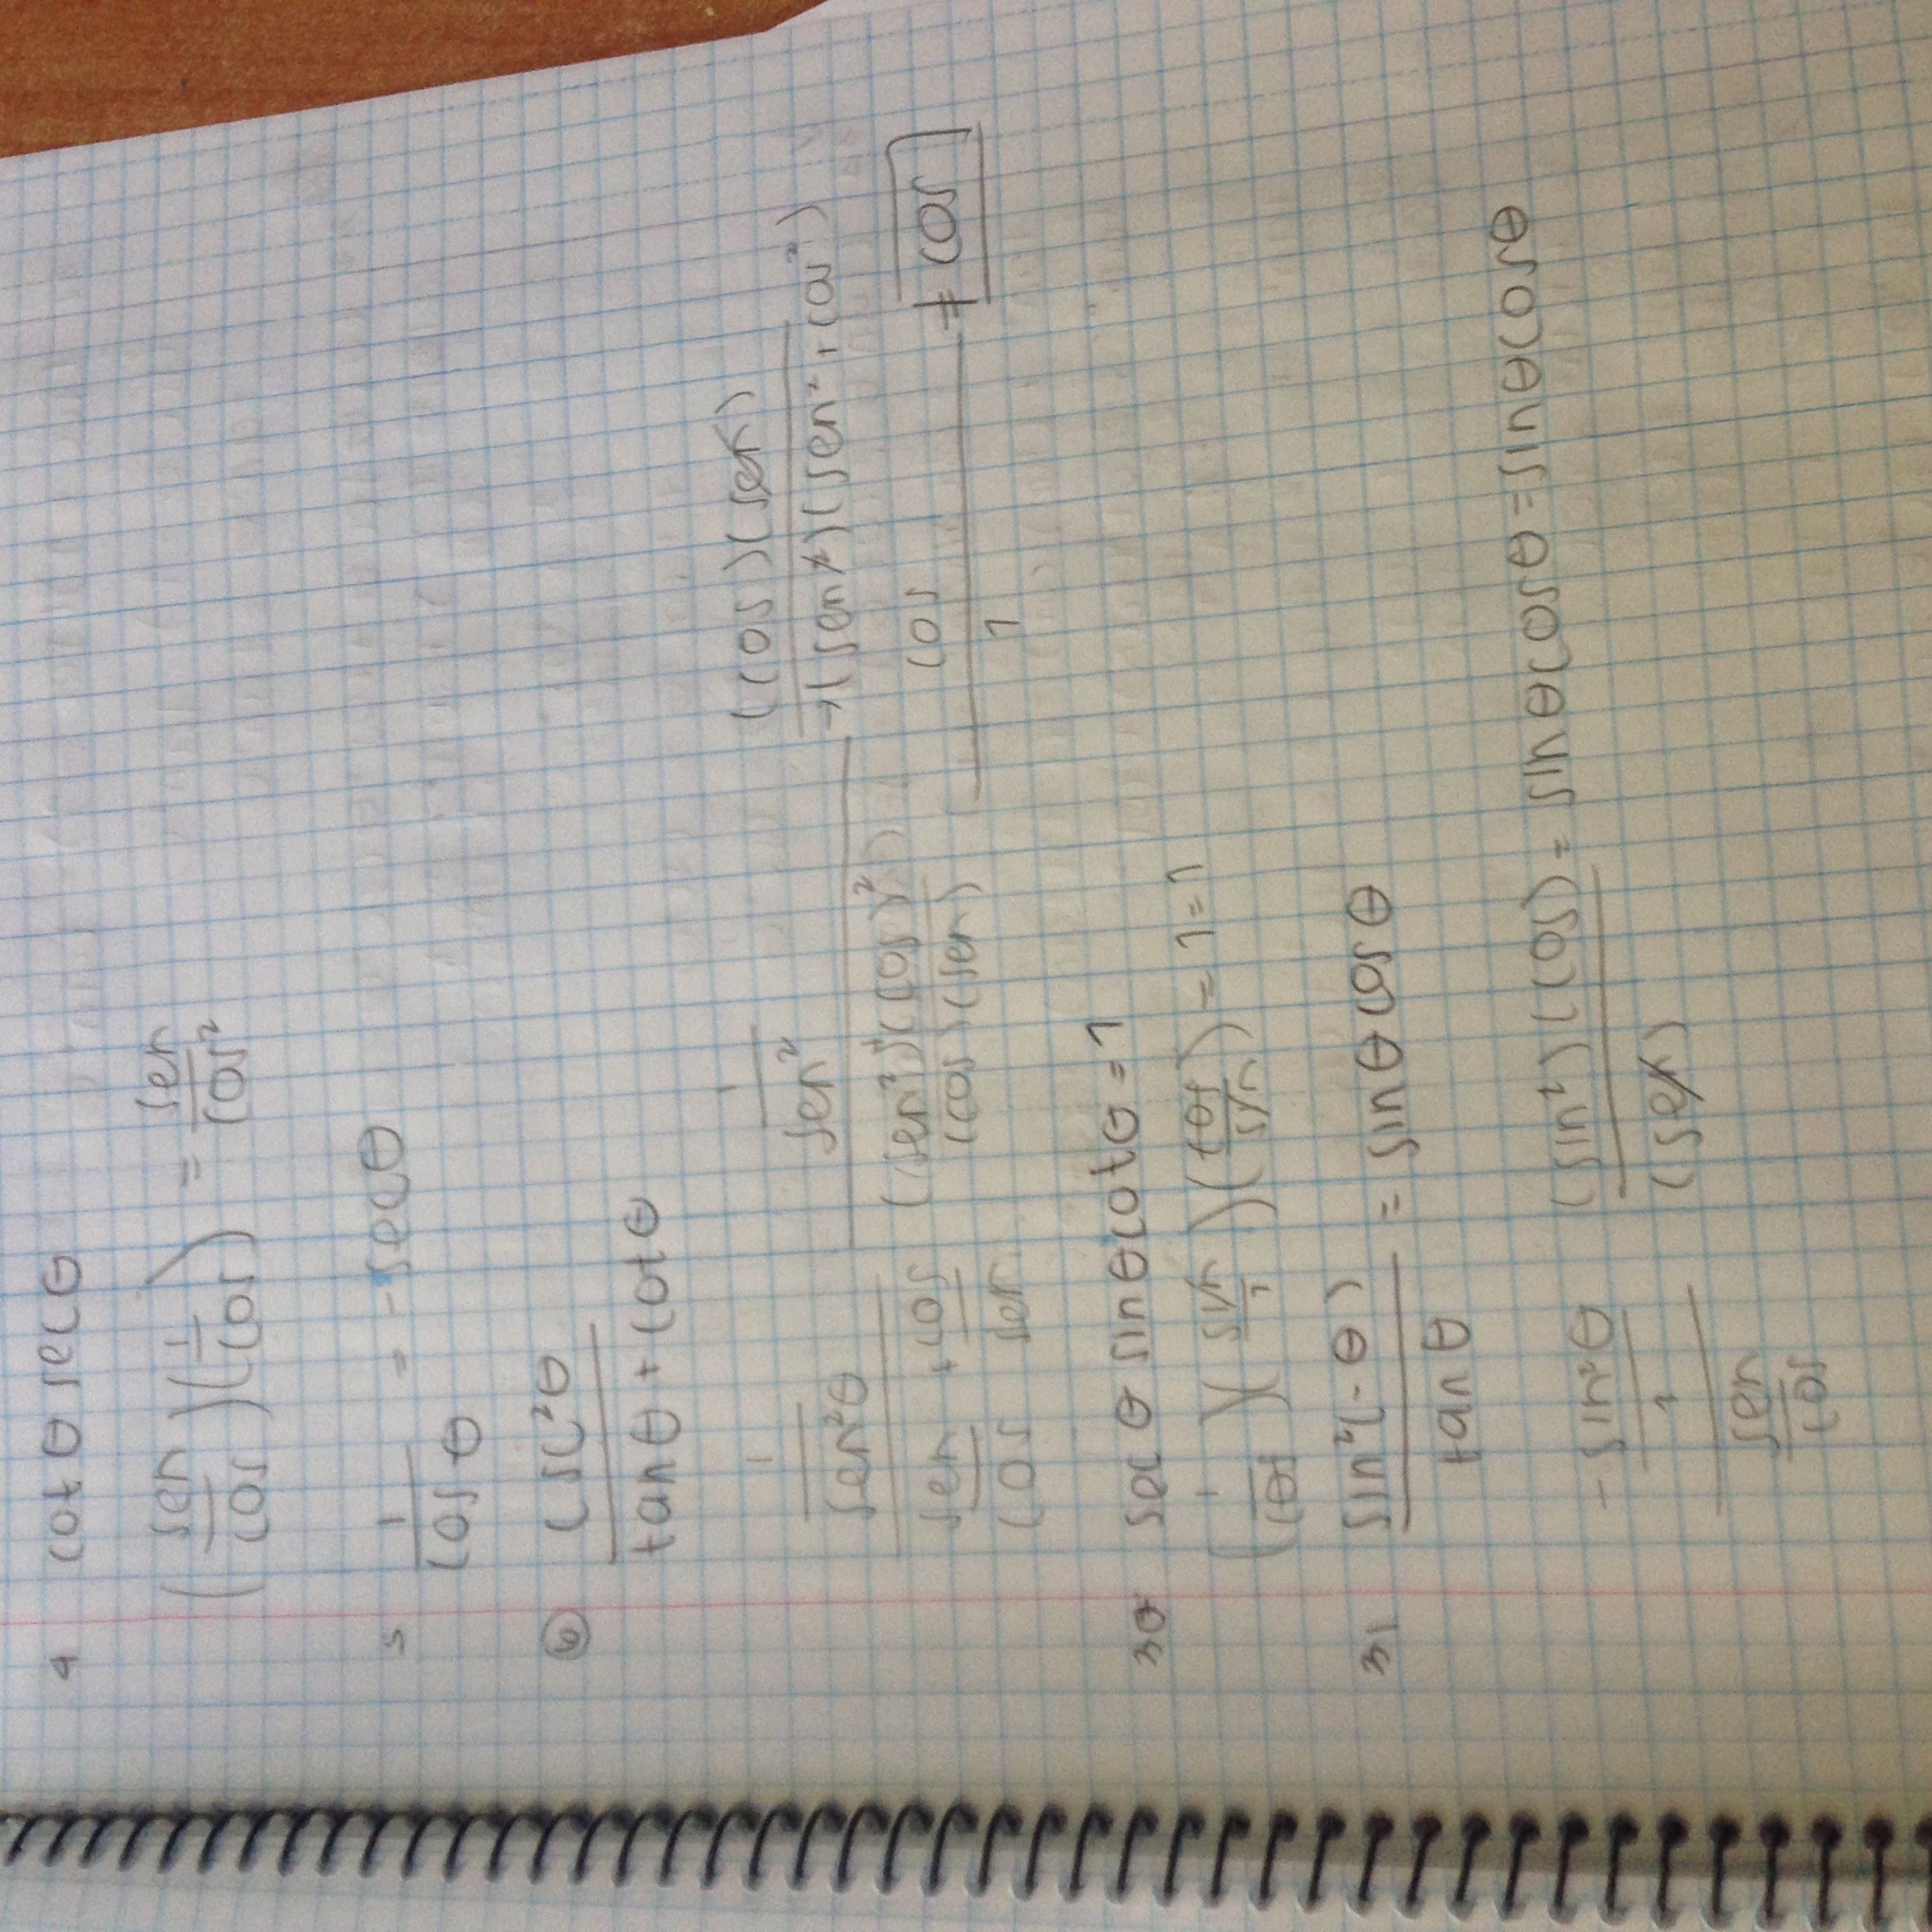 4 cot θ sec θ
(sen/cos)(1/cos) = sen/cos²
5 1/cos θ = - sec θ
6 csc²θ / tan θ + cot θ
1/sen²θ / sen/cos + cos/sen
1/sen² / (sen²)+(cos)² / (cos)(sen)
(cos)(sen) / (sen²)(sen²+cos²)
cos / 1 = cos
30 sec θ sin θ cot θ = 1
(1/cos)(sin/1)(cos/sin) = 1 = 1
31 sin²(-θ) / tan θ = sin θ cos θ
- sin²θ / 1 / sen/cos
(sin²)(cos) / (sen) = sin θ cos θ = sin θ cos θ